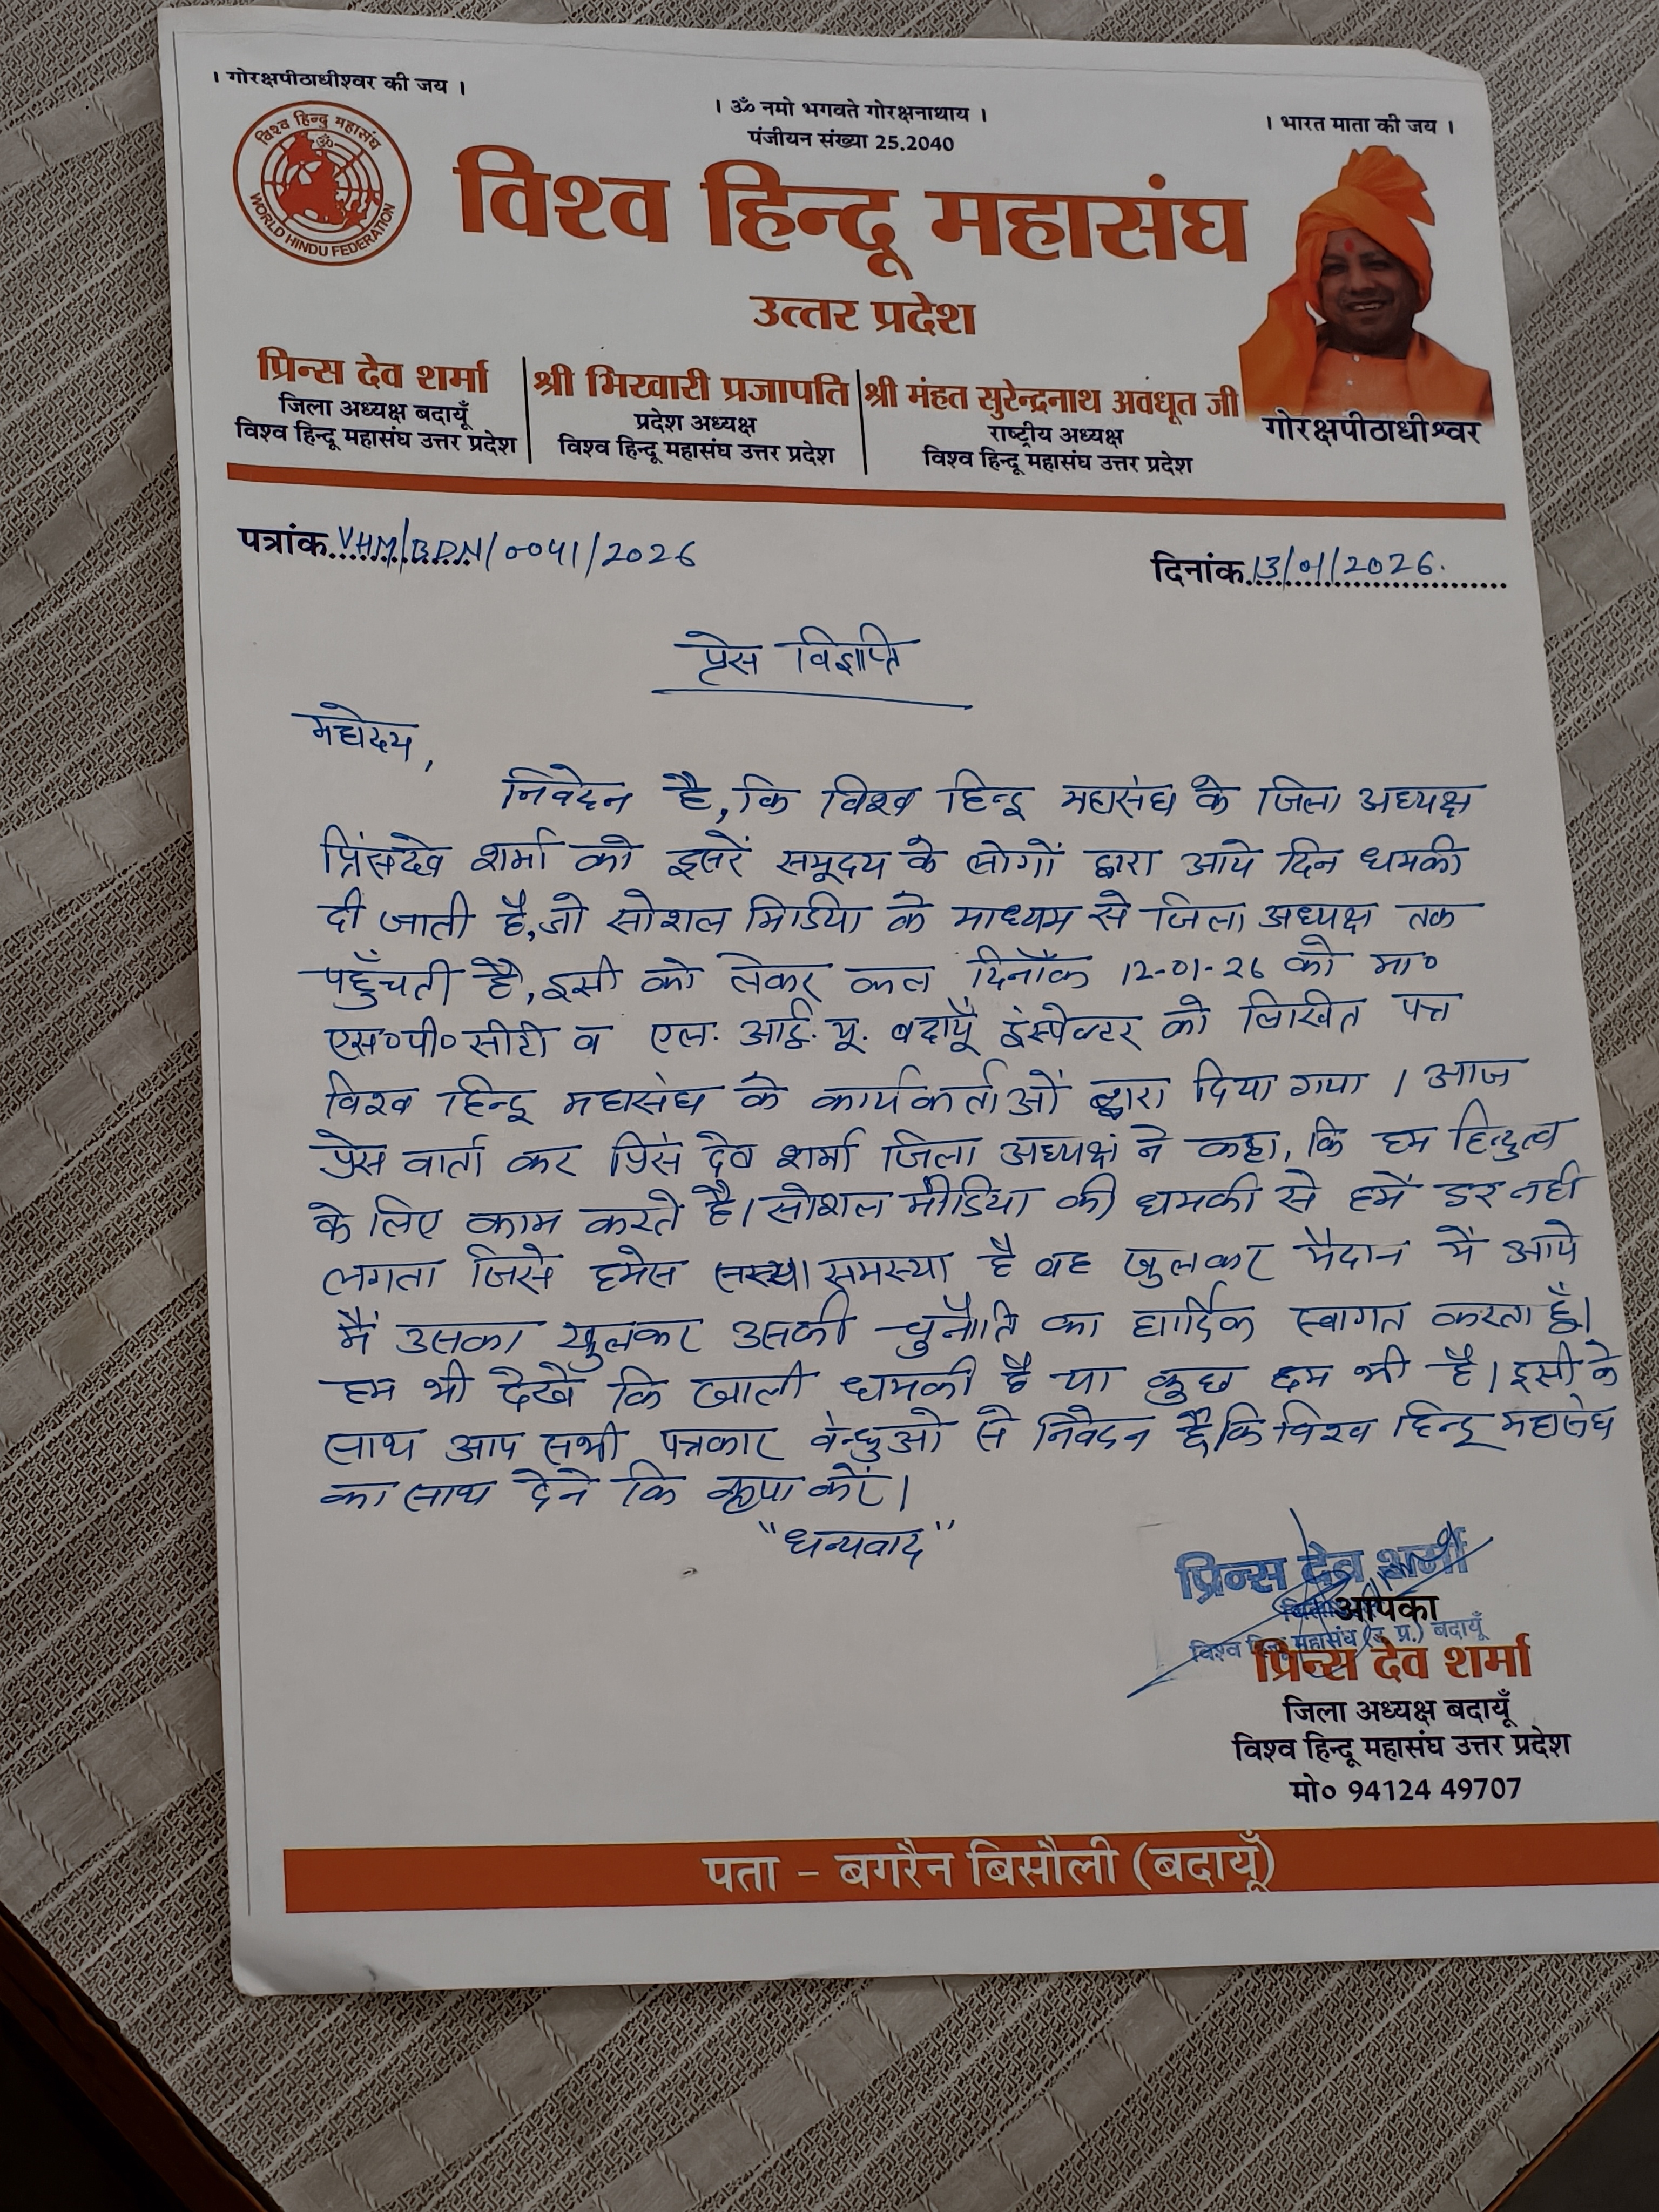 । गोरक्षपीठाधीश्वर की जय ।
। ॐ नमो भगवते गोरक्षनाथाय ।
। भारत माता की जय ।
पंजीयन संख्या 25.2040
विश्व हिन्दु महासंघ
ॐ
WORLD HINDU FEDERATION
विश्व हिन्दू महासंघ
उत्तर प्रदेश
प्रिन्स देव शर्मा
जिला अध्यक्ष बदायूँ
विश्व हिन्दू महासंघ उत्तर प्रदेश
श्री भिखारी प्रजापति
प्रदेश अध्यक्ष
विश्व हिन्दू महासंघ उत्तर प्रदेश
श्री मंहत सुरेन्द्रनाथ अवधूत जी
राष्ट्रीय अध्यक्ष
विश्व हिन्दू महासंघ उत्तर प्रदेश
गोरक्षपीठाधीश्वर
पत्रांक VHM/BDN/0041/2026
दिनांक 13/01/2026.
प्रेस विज्ञप्ति
महोदय,
निवेदन है, कि विश्व हिन्दू महासंघ के जिला अध्यक्ष
प्रिंसदेव शर्मा को दूसरें समूदय के लोगों द्वारा आये दिन धमकी
दी जाती है, जो सोशल मिडिया के माध्यम से जिला अध्यक्ष तक
पहुँचती है, इसी को लेकर कल दिनाँक 12-01-26 को मा०
एस०पी० सीटी व एल. आई. यू. बदायूँ इंस्पेक्टर को लिखित पत्र
विश्व हिन्दू महासंघ के कार्यकर्ताओं द्वारा दिया गया । आज
प्रेस वार्ता कर प्रिंस देव शर्मा जिला अध्यक्ष ने कहा, कि हम हिन्दुत्व
के लिए काम करते है। सोशल मीडिया की धमकी से हमें डर नही
लगता जिसे हमेस समस्या है वह खुलकर मैदान मै आये
मैं उसका खुलकर उसकी चुनौति का हार्दिक स्वागत करता हूँ।
हम भी देखें कि खाली धमकी है या कुछ दम भी है। इसी के
साथ आप सभी पत्रकार बंन्धुओ से निवेदन है कि विश्व हिन्दू महासंघ
का साथ देने कि कृपा करें।
"धन्यवाद"
प्रिन्स देव शर्मा
विश्व हिन्दू महासंघ (उ. प्र.) बदायूँ
आपका
प्रिन्स देव शर्मा
जिला अध्यक्ष बदायूँ
विश्व हिन्दू महासंघ उत्तर प्रदेश
मो० 94124 49707
पता - बगरैन बिसौली (बदायूँ)